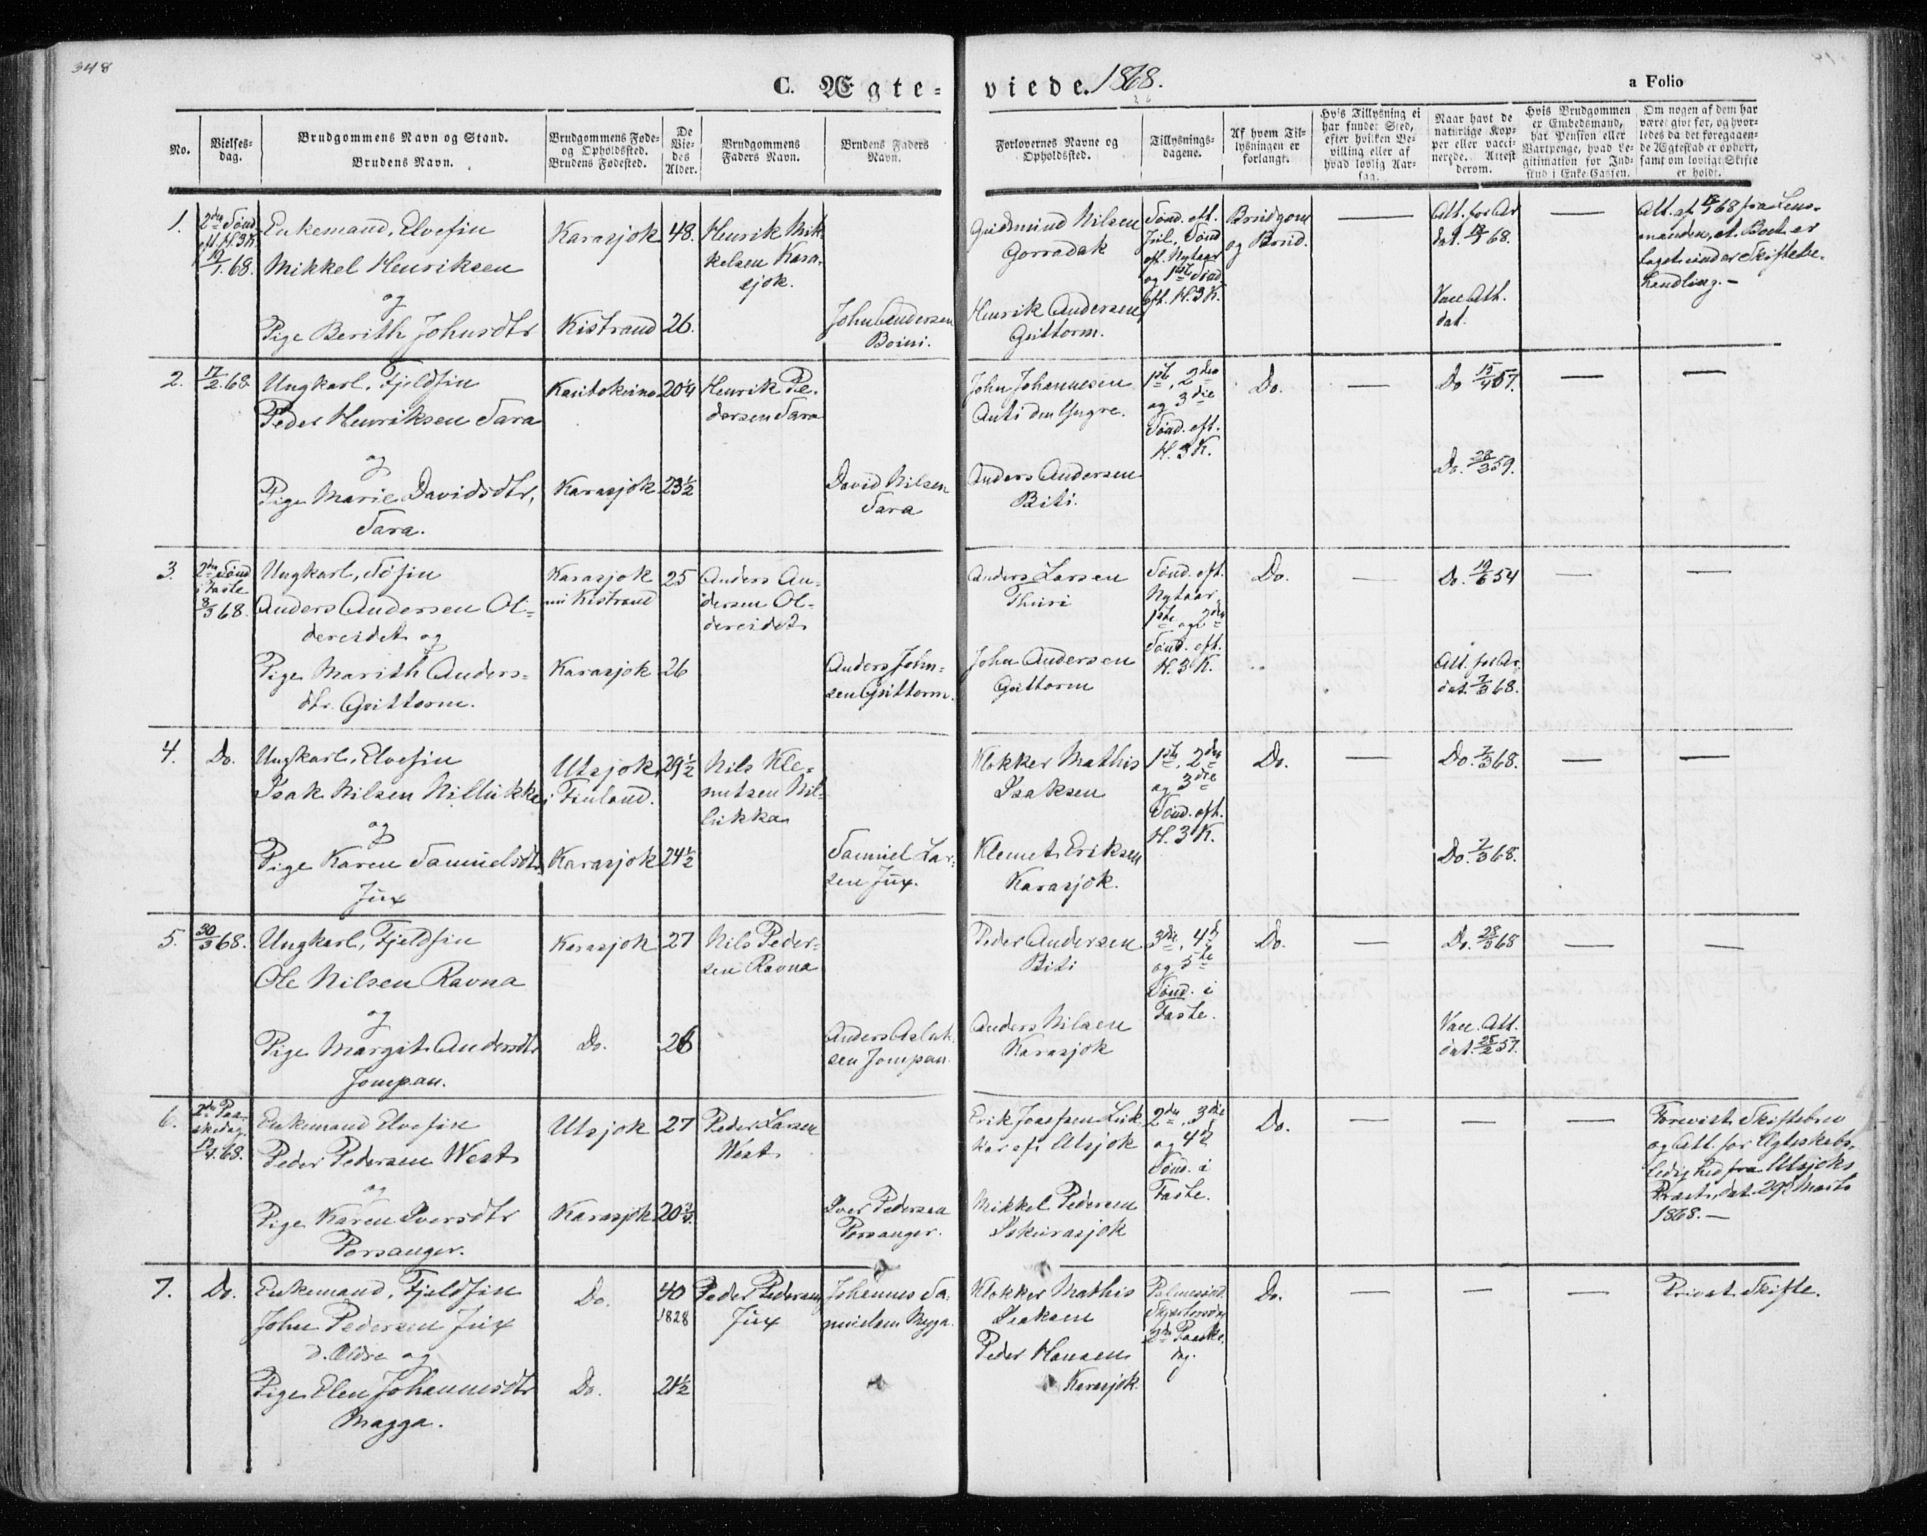 348
C. Ægteviede. 1868.
a Folio
No.
Vielsesdag.
Brudgommens Navn og Stand.
Brudens Navn.
Brudgommens Føde- og Opholdssted.
Brudens Fødested.
De Viedes Alder.
Brudgommens Faders Navn.
Brudens Faders Navn.
Forlovernes Navne og Opholdssted.
Tillysningsdagene.
Af hvem Tillysningen er forlangt.
Hvis Tillysning ei har fundet Sted, efter hvilken Bevilling eller af hvad lovlig Aarsag.
Naar havt de naturlige Kopper eller vaccinerede. Attest derom.
Hvis Brudgommen er Embedsmand, har Pension eller Vartpenge, hvad Legitimation for Indskud i Enke-Cassen.
Om nogen af dem har været givt før, og hvorledes da det foregaaende Ægteskab er ophørt, samt om lovligt Skifte er holdt.
1.
2den Sønd.
eft. H.3K.
19/1.68.
Enkemand, Elvefin
Mikkel Henriksen
og
Pige Berith Johnsdtr
Karasjok
Kistrand
48.
26.
Henrik Mikkelsen Karasjok.
John Andersen
Boini.
Gudmund Nilsen
Gorradak
Henrik Andersen
Guttorm.
Sønd. eft.
Jul, Sønd
eft. Nytaar
og 1ste Sønd
eft. H.3K.
Brudgom
og Brud.
Att. for Ar
dat. 68.
Vacc. Att.
dat.
Att. af 68 fra Lensmanden, at Boet er
taget under Skiftebehandling.—
2.
17/2.68.
Ungkarl, Fjeldfin
Peder Henriksen Sara
og
Pige Marie Davidsdtr,
Sara.
Kautokeino
Karasjok
20¼
23½
Henrik Pedersen Sara
David Nilsen
Sara
John Johannesen
Anti den Yngre.
Anders Andersen
Biti.
1ste, 2den
og 3die
Sønd. eft.
H.3K.
Do.
Do 15/4 57.
Do. 59.
3.
2den Sønd
i Faste
8/3 68.
Ungkarl, Søfin
Anders Andersen Oldereidet og
Pige Marith Andersdtr. Guttorm.
Karasjok
nu Kistrand
Karasjok
25
26
Anders Andersen Oldereidet
Anders Johnsen Guttorm.
Anders Larsen
Thuri
John Andersen
Guttorm
Sønd. eft.
Nytaar,
1ste og 2den
Sønd. eft.
H.3K.
Do.
Do. 19/6 54
Att. for Ar.
dat. 7/3 68.
4.
Do.
Ungkarl, Elvefin
Isak Nilsen Nillukka
og
Pige Karen Samuelsdtr.
Jux
Utsjok
i Finland.
Karasjok
29½
24½
Nils Klemetsen Nillukka
Samuel Larsen Jux.
Klokker Mathis
Isaksen
Klemet Eriksen
Karasjok.
1ste, 2den
og 3die
Sønd. eft.
H.3K.
Do.
Do. 7/3 68.
Do. 7/3 68.
5.
30/3 68.
Ungkarl, Fjeldfin
Ole Nilsen Ravna
og
Pige Margit Andersdtr
Jompan.
Karasjok
Do.
27
26
Nils Pedersen Ravna
Anders Aslaksen Jompan.
Peder Andersen
Biti
Anders Nilsen
Karasjok
3die, 4de
og 5te
Sønd. i
Faste.
Do.
Do. 28/3 68
Vacc. Att.
dat. 57.
6.
2den Paaskedag.
13/4.68.
Enkemand Elvefin
Peder Pedersen West
og
Pige Karen Iversdtr
Porsanger.
Utsjok
Karasjok
27
20¾
Peder Larsen
West
Iver Pedersen
Porsanger.
Erik Josefsen
Utsjok
Mikkel Pedersen
Iskurasjok
2den, 3die
og 4de
Sønd. i
Faste.
Do.
Forevist Skiftebrev
og Att. for Ægteskabsledighed fra Utsjoks
Præst, dat 29de Marts
1868.—
7.
Do.
Enkemand, Fjeldfin
John Pedersen Jux
d. Ældre og
Pige Elen Johannesdtr
Magga.
Do.
Do.
40
1828
21½
Peder Pedersen
Jux
Johannes Samuelsen Magga.
Klokker Mathis
Isaksen
Peder Hansen
Karasjok
Palmesønd.
Skjærtorsdag
2den Paaskedag.
Do.
Privat Skifte.